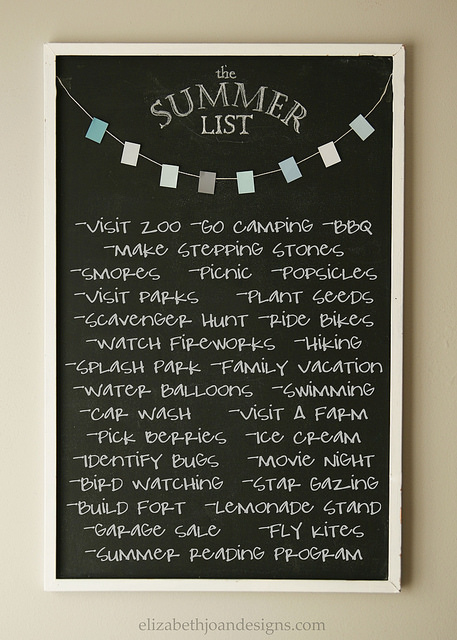 the
SUMMER
LIST
-VISIT ZOO -GO CAMPING -BBQ
-MAKE STEPPING STONES
-SMORES -PICNIC -POPSICLES
-VISIT PARKS -PLANT SEEDS
-SCAVENGER HUNT -RIDE BIKES
-WATCH FIREWORKS -HIKING
-SPLASH PARK -FAMILY VACATION
-WATER BALLOONS -SWIMMING
-CAR WASH -VISIT A FARM
-PICK BERRIES -ICE CREAM
-IDENTIFY BUGS -MOVIE NIGHT
-BIRD WATCHING -STAR GAZING
-BUILD FORT -LEMONADE STAND
-GARAGE SALE -FLY KITES
-SUMMER READING PROGRAM
elizabethjoandesigns.com